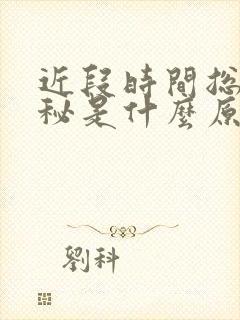 近段時間總
秘是什麼原
劉科